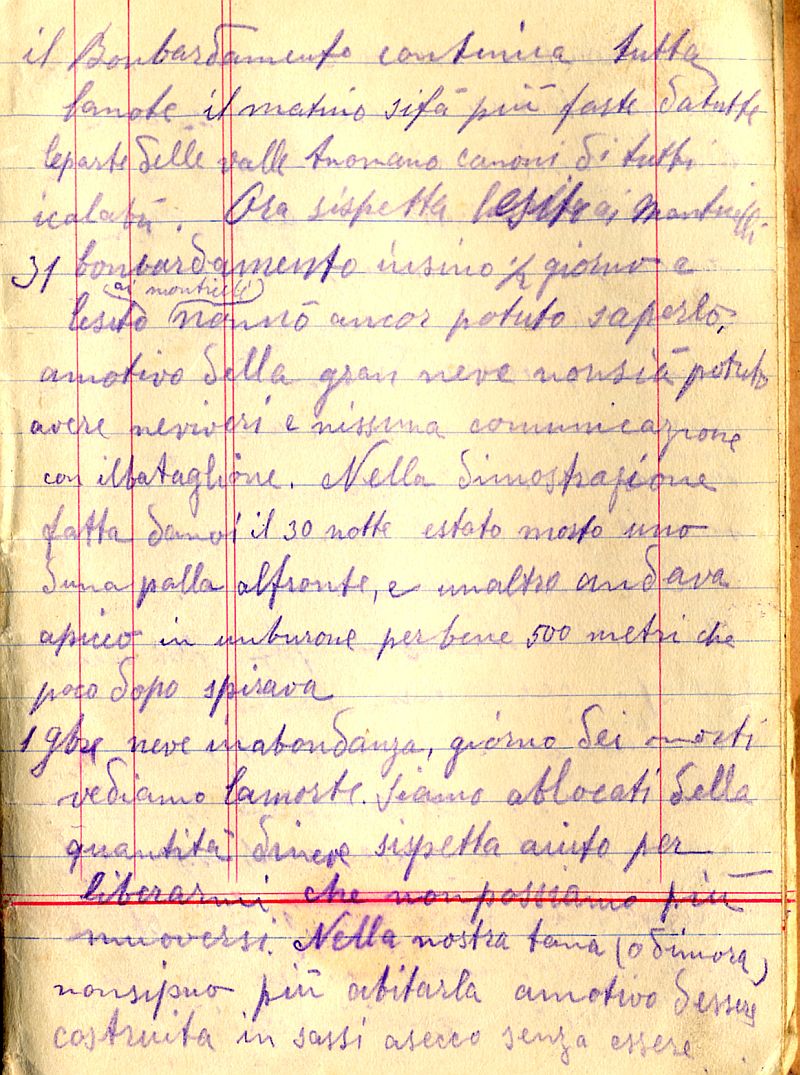 il Bonbardamento continua tutta
lanote il matino sifá più forte datutte
leparte delle valle tnonano canoni di tutti
icalabri. Ora sispetta lesito ai Monticelli
31 bonbardamento insino ½ giorno e
(ai monticeli)
lesito nonnò ancor potuto saperlo,
amotivo della gran neve nonsià potuto
avere neviveri e nissuna comunicazione
con ilbataglione. Nella dimostrazione
fatta danoi il 30 notte estato morto uno
duna palla alfronte, e unaltro andava
apicco in unburone perbene 500 metri che
poco dopo spirava
1 9bre neve inabondanza, giorno dei morti
vediamo lamorte. siamo ablocati della
quantità dineve sispetta aiuto per
liberarmi che nonpossiamo più
muoversi. Nella nostra tana (o dimora)
nonsipuo più abitarla amotivo dessere
costruita in sassi asecco senza essere